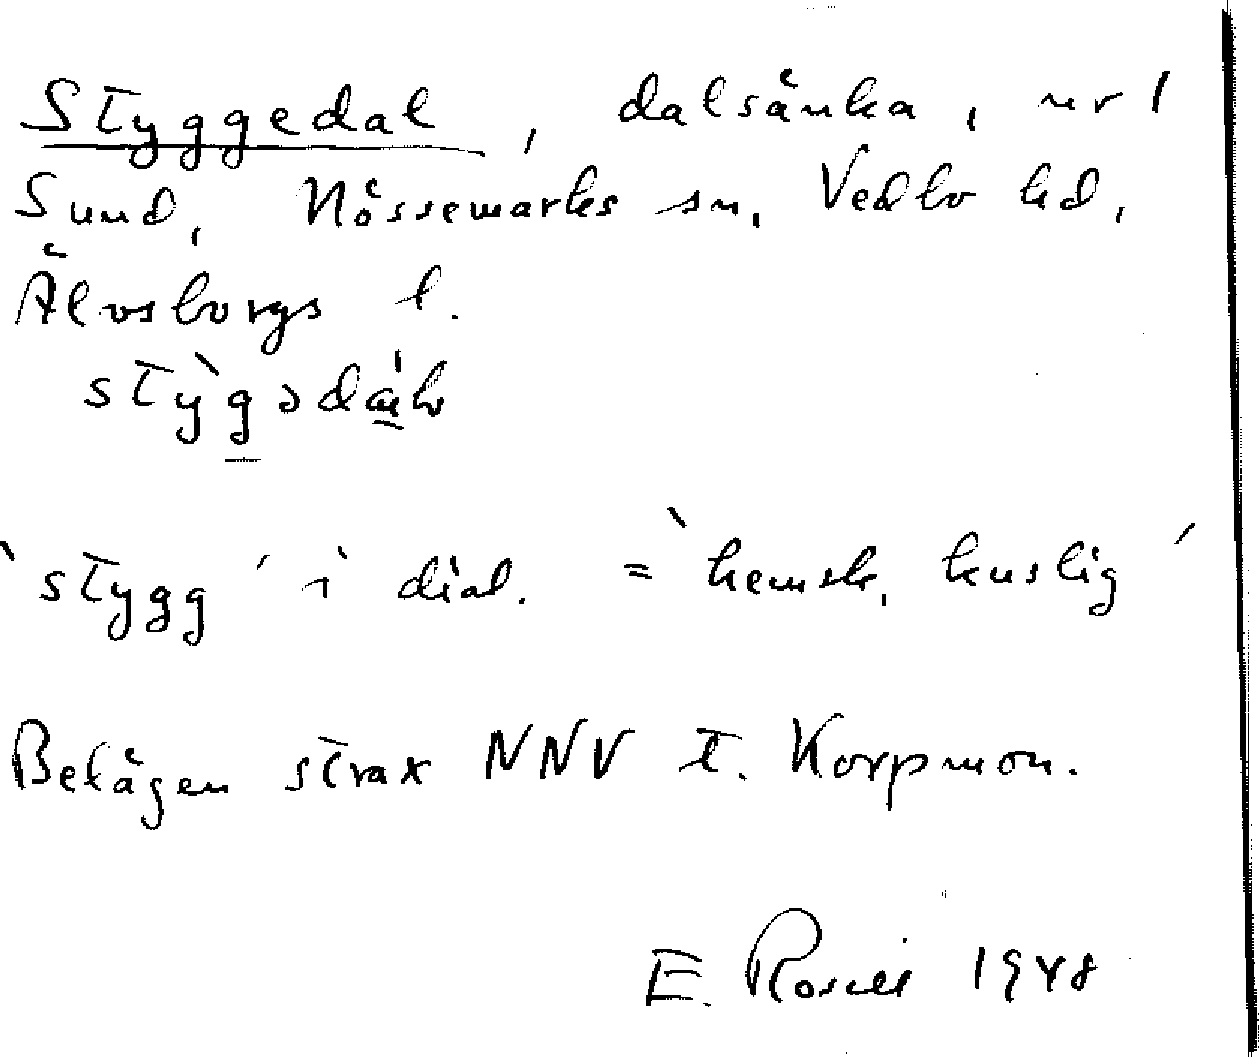 Styggedal, dalsänka, nr 1
Sund, Nössemarks sn, Vedbo hd,
Älvsborgs l.
`stygg´ i dial. = `hemsk, kuslig´
Belägen strax NNV t. Korpmon.
E. Rosell 1948